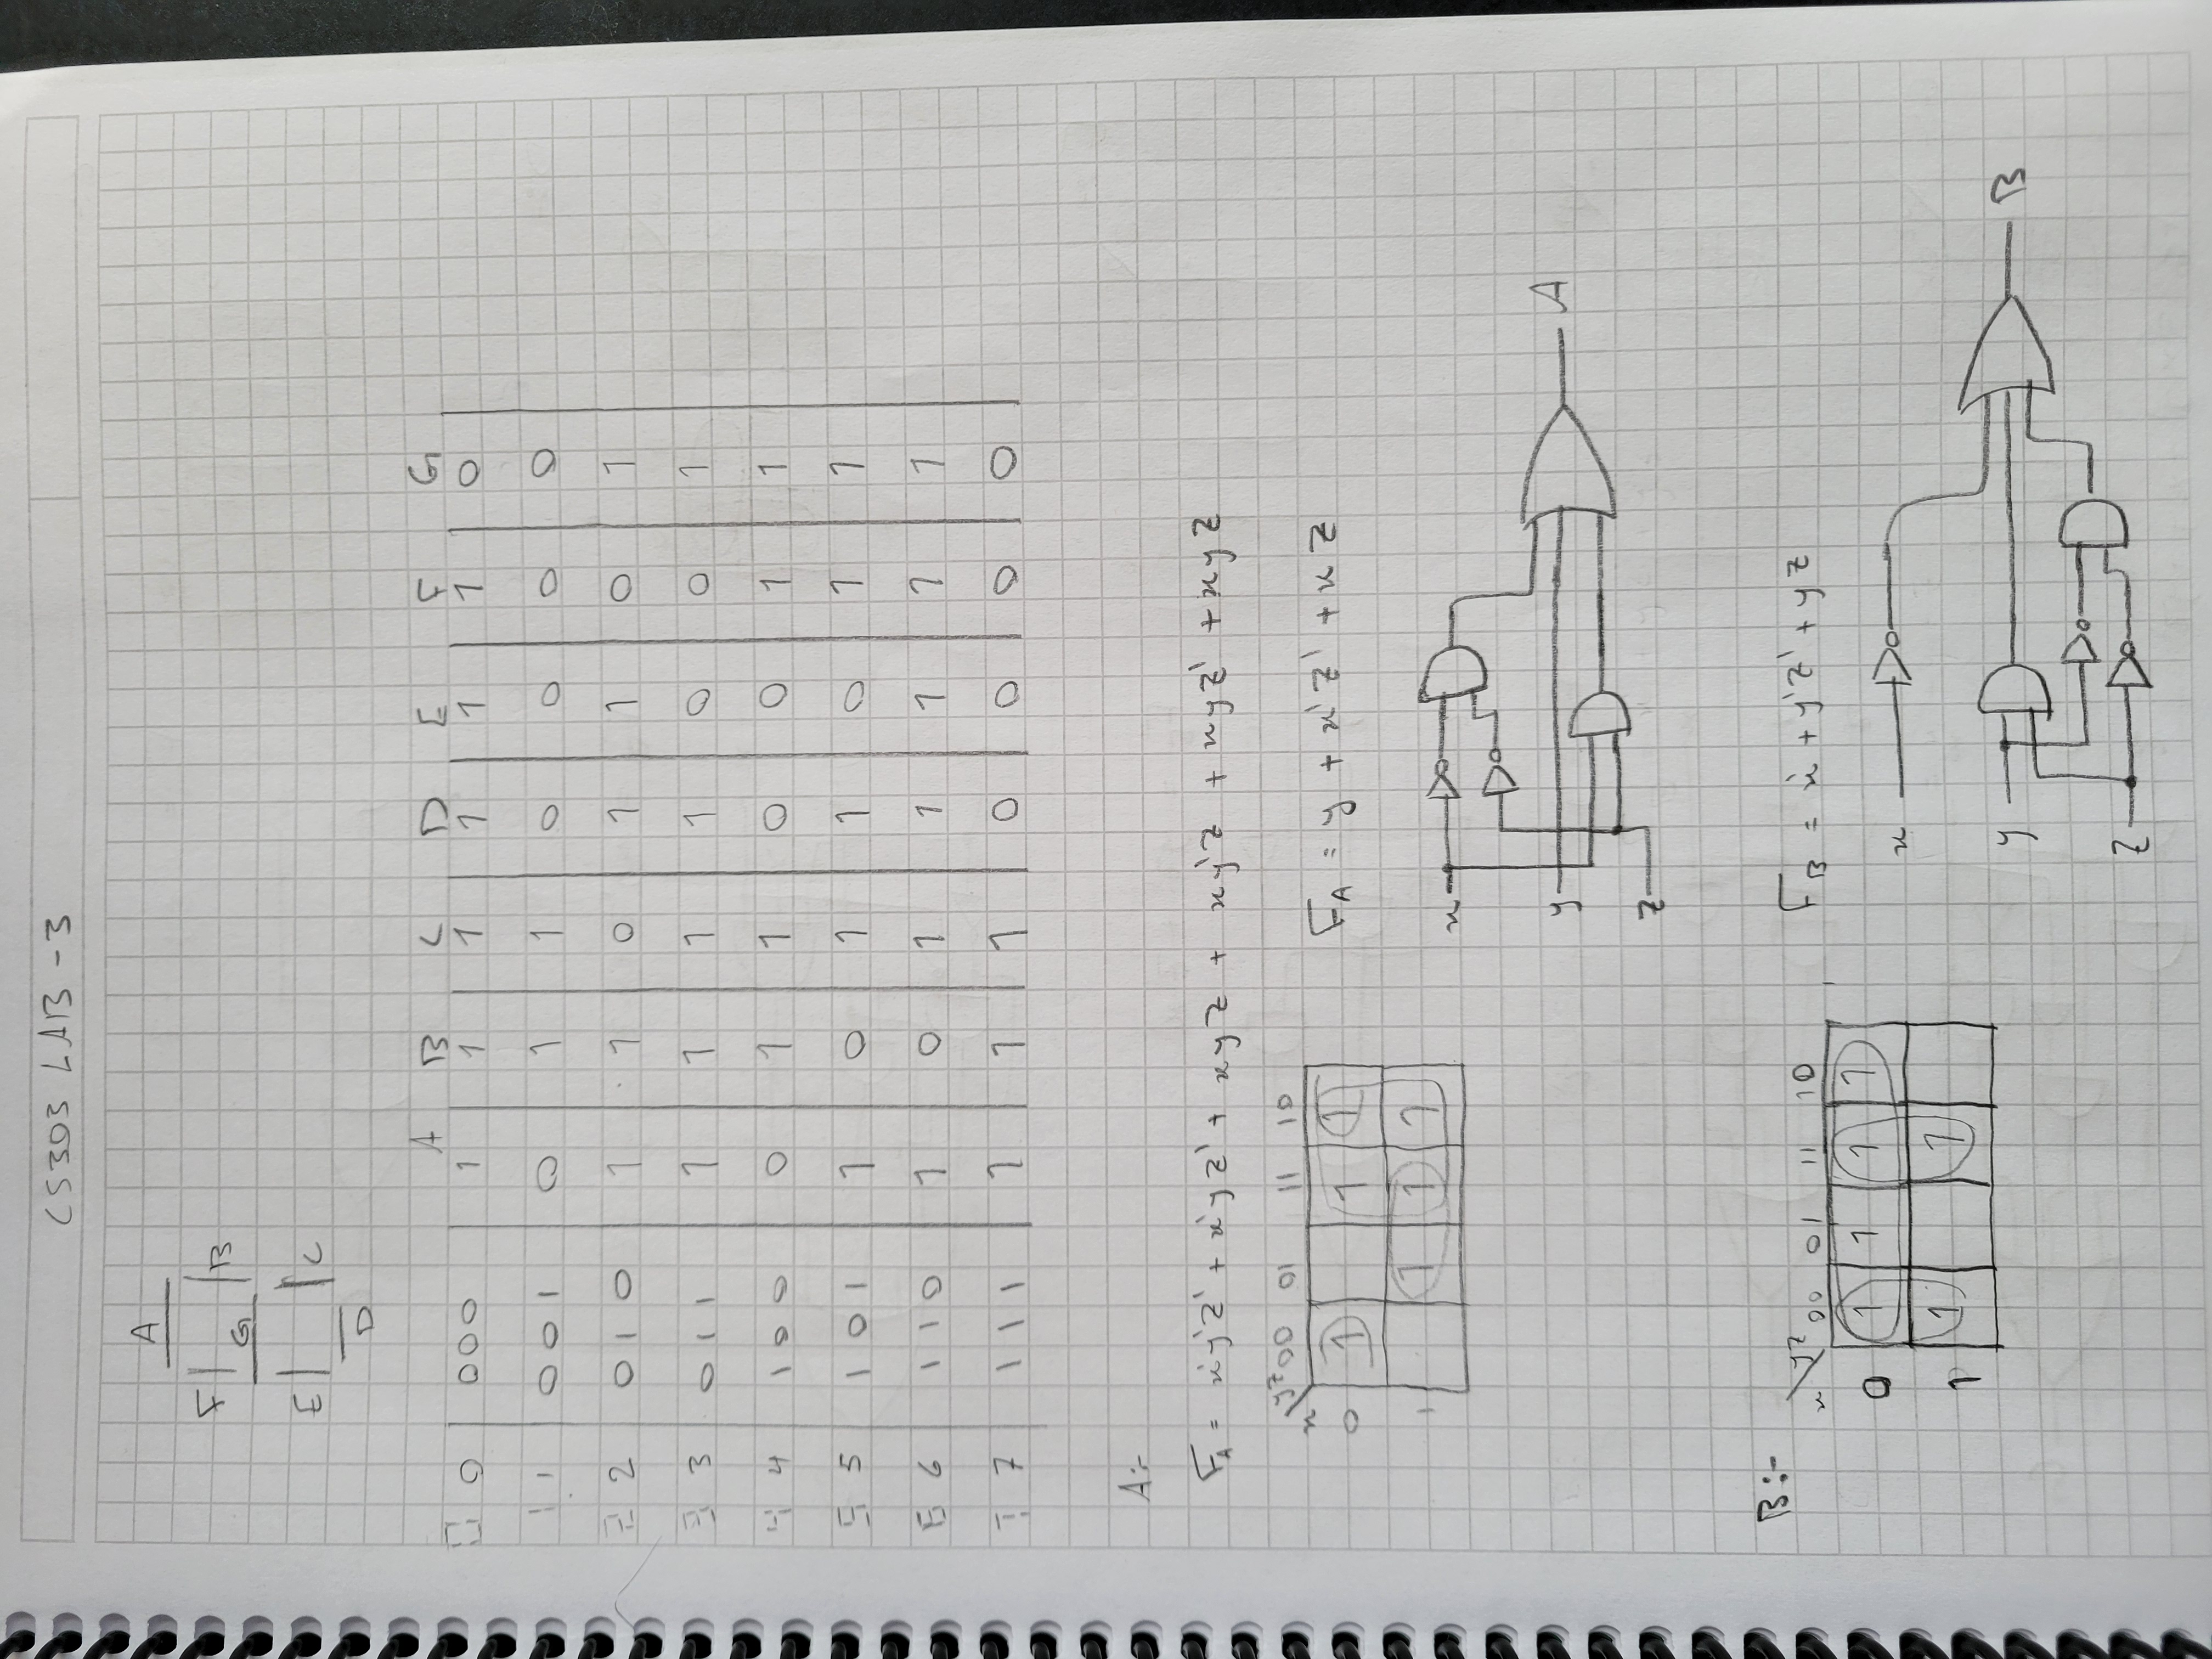 CS303 LAB - 3
A
F B
G
E C
D
A B C D E F G
0 000 1 1 1 1 1 1 0
1 001 0 1 1 0 0 0 0
2 010 1 1 0 1 1 0 1
3 011 1 1 1 1 0 0 1
4 100 0 1 1 0 0 1 1
5 101 1 0 1 1 0 1 1
6 110 1 0 1 1 1 1 1
7 111 1 1 1 0 0 0 0
A:-
F_A = x'y'z' + x'yz' + xyz + xy'z + xyz' + xyz
x yz 00 01 11 10
0 1 1 1
1 1 1 1
F_A = y + x'z' + xz
x
y
z
A
B:-
x yz 00 01 11 10
0 1 1 1 1
1 1 1
F_B = x' + y'z' + yz
x
y
z
B